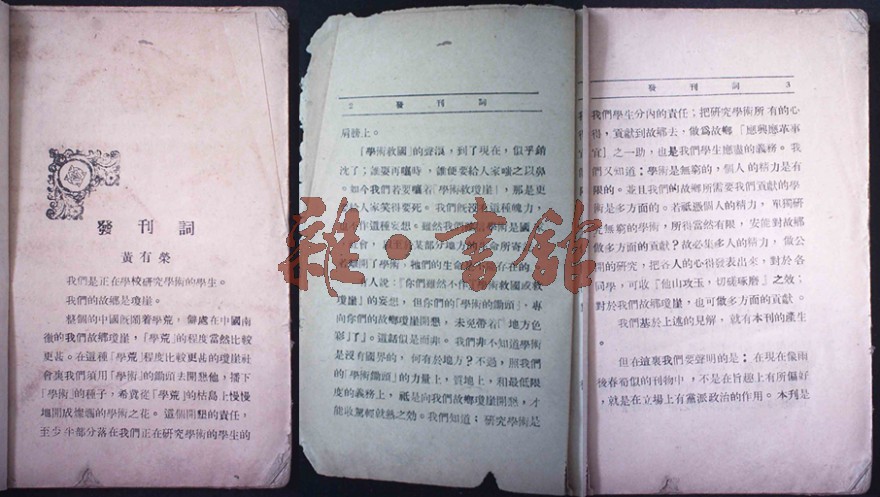 發刊詞
黃有榮
我們是正在學校研究學術的學生。
我們的故鄉是瓊崖。
整個的中國既鬧着學荒，僻處在中國南
徼的我們故鄉瓊崖，『學荒』的程度當然比較
更甚。在這種『學荒』程度比較更甚的瓊崖社
會裏我們須用『學術』的鋤頭去開墾他，播下
『學術』的種子，希冀從『學荒』的枯島上慢慢
地開成燦爛的學術之花。這個開墾的責任，
至少半部分落在我們正在研究學術的學生的
2 發刊詞
肩膀上。
『學術救國』的聲浪，到了現在，似乎銷
沈了；誰要再嚷時，誰便要給人家嗤之以鼻
。如今我們若要嚷着『學術救瓊崖』，那是更
給人家笑得要死。我們既沒有這種魄力，
也不作這種妄想。雖然我們
社會，以至於某部分地方的生命所寄
開了學術，牠們的生命
有人說：『你們雖然不作學術救國或救
瓊崖』的妄想，但你們的『學術的鋤頭』，專
向你們的故鄉瓊崖開墾，未免帶着『地方色
彩』了』。這話似是而非。我們非不知道學術
是沒有國界的，何有於地方？不過，照我們
的『學術鋤頭』的力量上，質地上，和最低限
度的義務上，祇是向我們故鄉瓊崖開墾，才
能收駕輕就熟之効。我們知道：研究學術是
發刊詞 3
我們學生分內的責任；把研究學術所有的心
得，貢獻到故鄉去，做爲故鄉『應興應革事
宜』之一助，也是我們學生應盡的義務。我
們又知道：學術是無窮的，個人的精力是有
限的。並且我們的故鄉所需要我們貢獻的學
術是多方面的。若祇憑個人的精力，單獨研
究無窮的學術，所得當然有限，安能對故鄉
做多方面的貢獻？故必集多人的精力，做公
開的研究，把各人的心得發表出來，對於各
同學，可收『他山攻玉，切磋琢磨』之效；
對於我們故鄉瓊崖，也可做多方面的貢獻。
我們基於上述的見解，就有本刊的產生
。
但在這裏我們要聲明的是：在現在像雨
後春筍似的刊物中，不是在旨趣上有所偏好
，就是在立場上有黨派政治的作用。本刊是
雜·書館